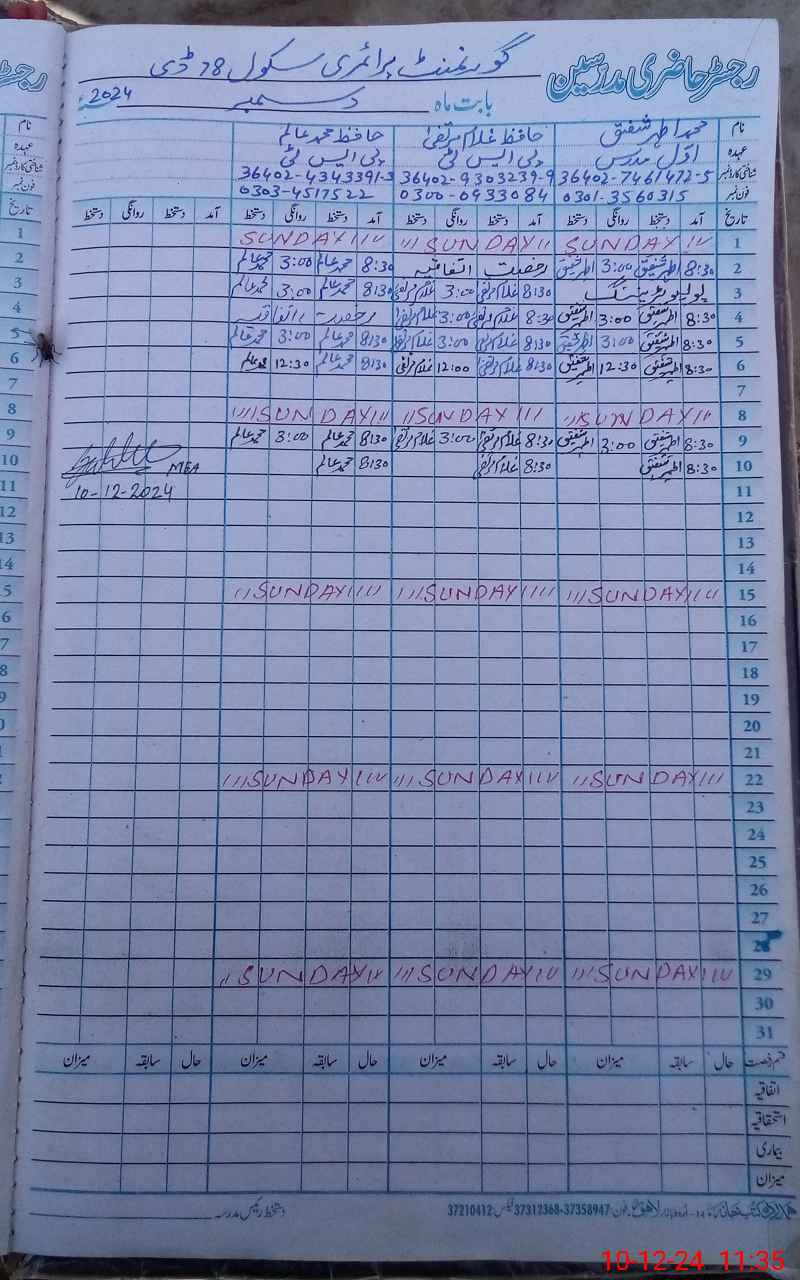 رجسٹر حاضری مدرسین
گورنمنٹ پرائمری سکول 78 ڈی
بابت ماہ دسمبر 2024
نام محمد اطہر شفیق حافظ غلام مرتضیٰ حافظ محمد عالم
عہدہ اول مدرس پی ایس ٹی پی ایس ٹی
شناختی کارڈ نمبر 36402-7461472-5 36402-9303239-9 36402-4343391-3
فون نمبر 0301-3560315 0300-0933084 0303-4517522
تاریخ آمد دستخط روانگی دستخط آمد دستخط روانگی دستخط آمد دستخط روانگی دستخط آمد دستخط روانگی دستخط
1 SUNDAY SUNDAY SUNDAY
2 8:30 اطہر شفیق 3:00 اطہر شفیق رخصت اتفاقیہ 8:30 محمد عالم 3:00 محمد عالم
3 پولیو ٹریننگ 8:30 غلام مرتضیٰ 3:00 غلام مرتضیٰ 8:30 محمد عالم 3:00 محمد عالم
4 8:30 اطہر شفیق 3:00 اطہر شفیق 8:30 غلام مرتضیٰ 3:00 غلام مرتضیٰ رخصت اتفاقیہ
5 8:30 اطہر شفیق 3:00 اطہر شفیق 8:30 غلام مرتضیٰ 3:00 غلام مرتضیٰ 8:30 محمد عالم 3:00 محمد عالم
6 8:30 اطہر شفیق 12:30 اطہر شفیق 8:30 غلام مرتضیٰ 12:00 غلام مرتضیٰ 8:30 محمد عالم 12:30 محمد عالم
7
8 SUNDAY SUNDAY SUNDAY
9 8:30 اطہر شفیق 3:00 اطہر شفیق 8:30 غلام مرتضیٰ 3:00 غلام مرتضیٰ 8:30 محمد عالم 3:00 محمد عالم
10 8:30 اطہر شفیق 8:30 غلام مرتضیٰ 8:30 محمد عالم MEA
11 10-12-2024
12
13
14
15 SUNDAY SUNDAY SUNDAY
16
17
18
19
20
21
22 SUNDAY SUNDAY SUNDAY
23
24
25
26
27
28
29 SUNDAY SUNDAY SUNDAY
30
31
قسم رخصت حال سابقہ میزان حال سابقہ میزان حال سابقہ میزان حال سابقہ میزان
اتفاقیہ
استحقاقیہ
بیماری
میزان
دستخط رئیس مدرسہ
اردو بازار لاہور فون: 37358947-37312368 فیکس: 37210412
10-12-24 11:35